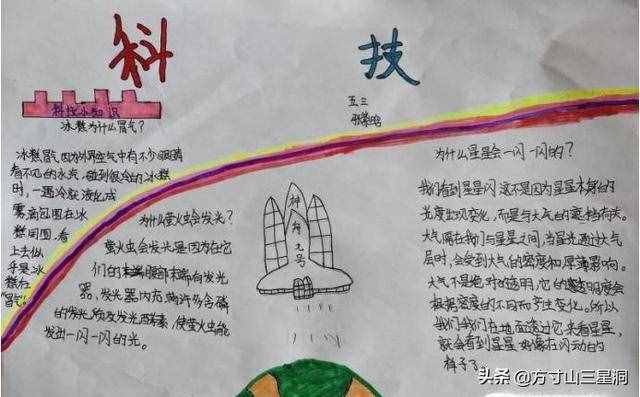 科 技
科技小知识
冰糕为什么冒气?
五三
冰糕冒气因为外界空气中有不少眼睛
看不见的水汽,碰到很冷的冰糕
时,一遇冷就液化成
雾滴包围在冰
糕周围,看
上去似
乎是冰
糕在
“冒气”
为什么萤火虫会发光?
萤火虫会发光是因为在它
们的末端腹部末端有发光
器,发光器内充满许多含磷
的发光质及发光酵素,使萤火虫能
发出一闪一闪的光。
神
舟
九号
为什么星星会一闪一闪的?
我们看到星星闪,这不是因为星星本身的
光度出现变化,而是与大气的遮挡有关。
大气隔在我们与星星之间,当星光通过大气
层时,会受到大气的密度和厚薄影响。
大气不是绝对的透明,它的透明度会
根据密度的不同而产生变化。所以
我们我们在地面透过它来看星星,
就会看到星星好像在闪动的
样子了。
头条 @方寸山三星洞